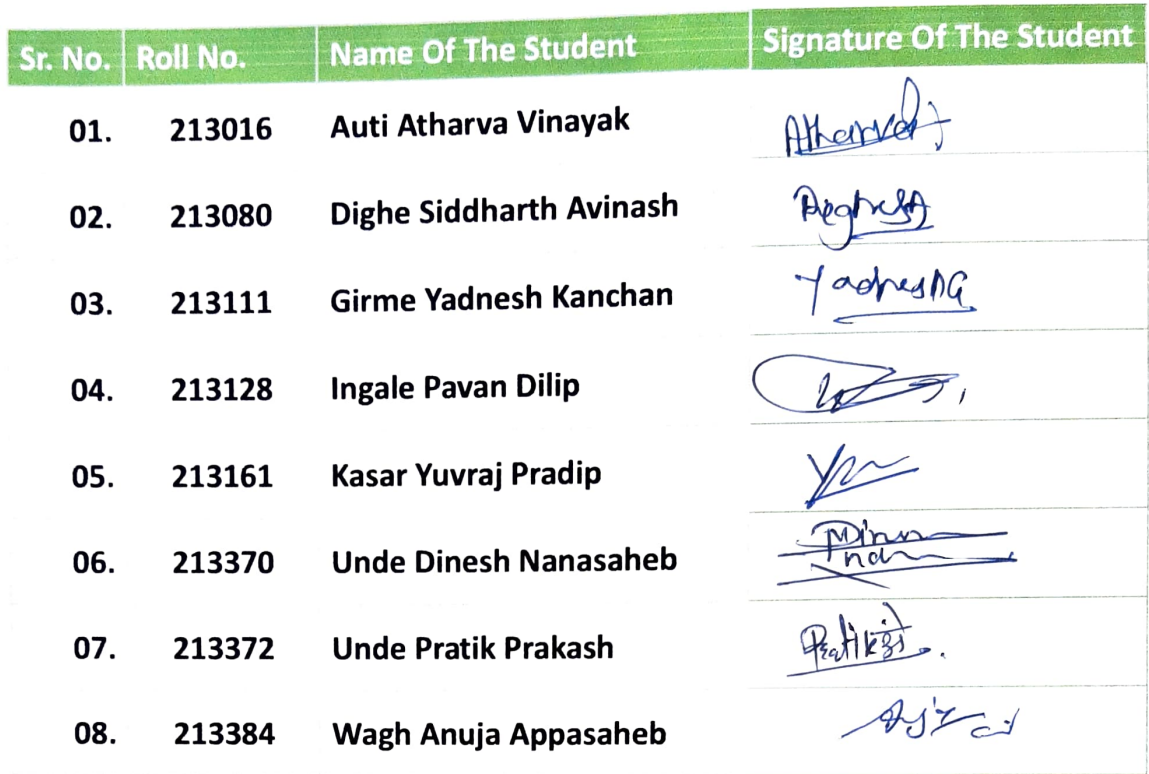 Sr. No. Roll No. Name Of The Student Signature Of The Student
01. 213016 Auti Atharva Vinayak Atharva
02. 213080 Dighe Siddharth Avinash
03. 213111 Girme Yadnesh Kanchan
04. 213128 Ingale Pavan Dilip
05. 213161 Kasar Yuvraj Pradip
06. 213370 Unde Dinesh Nanasaheb
07. 213372 Unde Pratik Prakash Pratik
08. 213384 Wagh Anuja Appasaheb